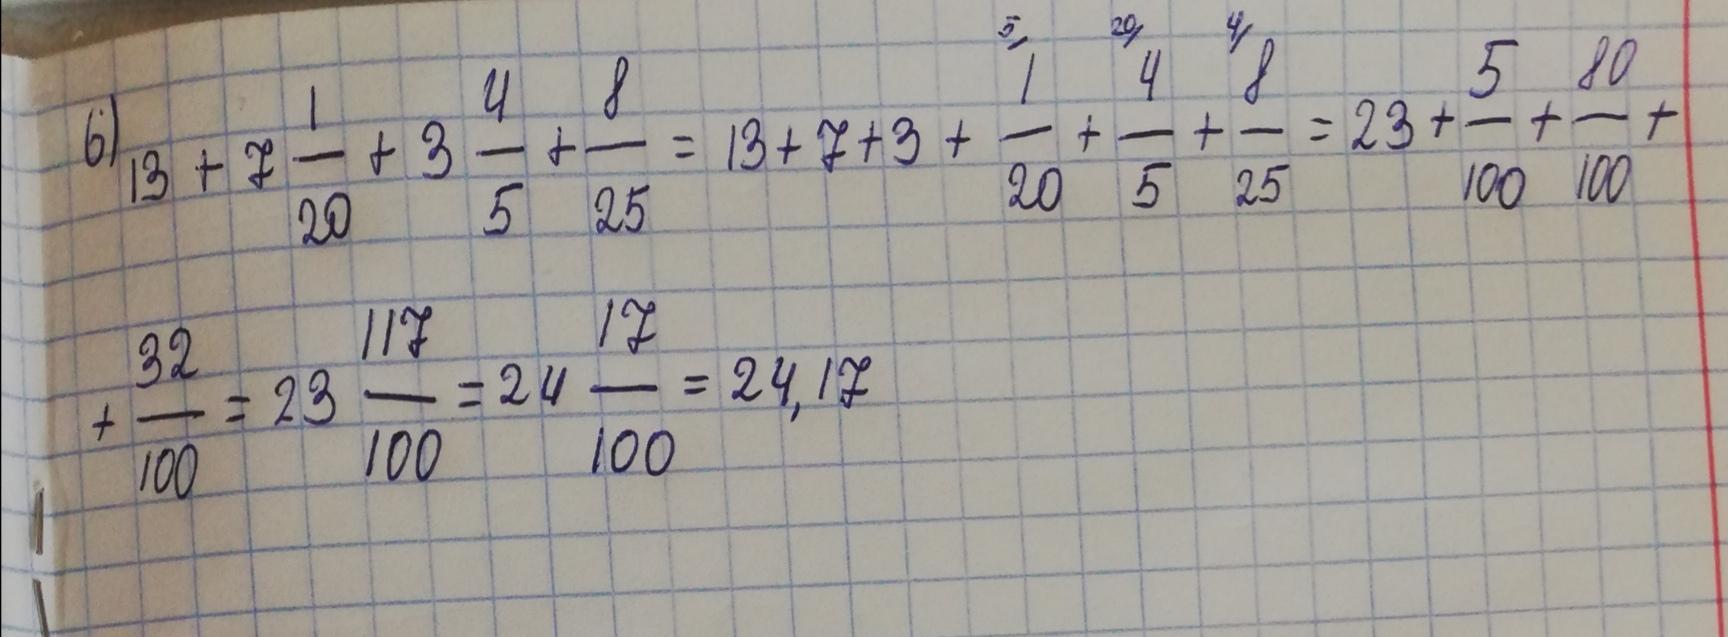 б) 13 + 7 1/20 + 3 4/5 + 8/25 = 13 + 7 + 3 + 5/ 1/20 + 20/ 4/5 + 4/ 8/25 = 23 + 5/100 + 80/100 +
+ 32/100 = 23 117/100 = 24 17/100 = 24,17